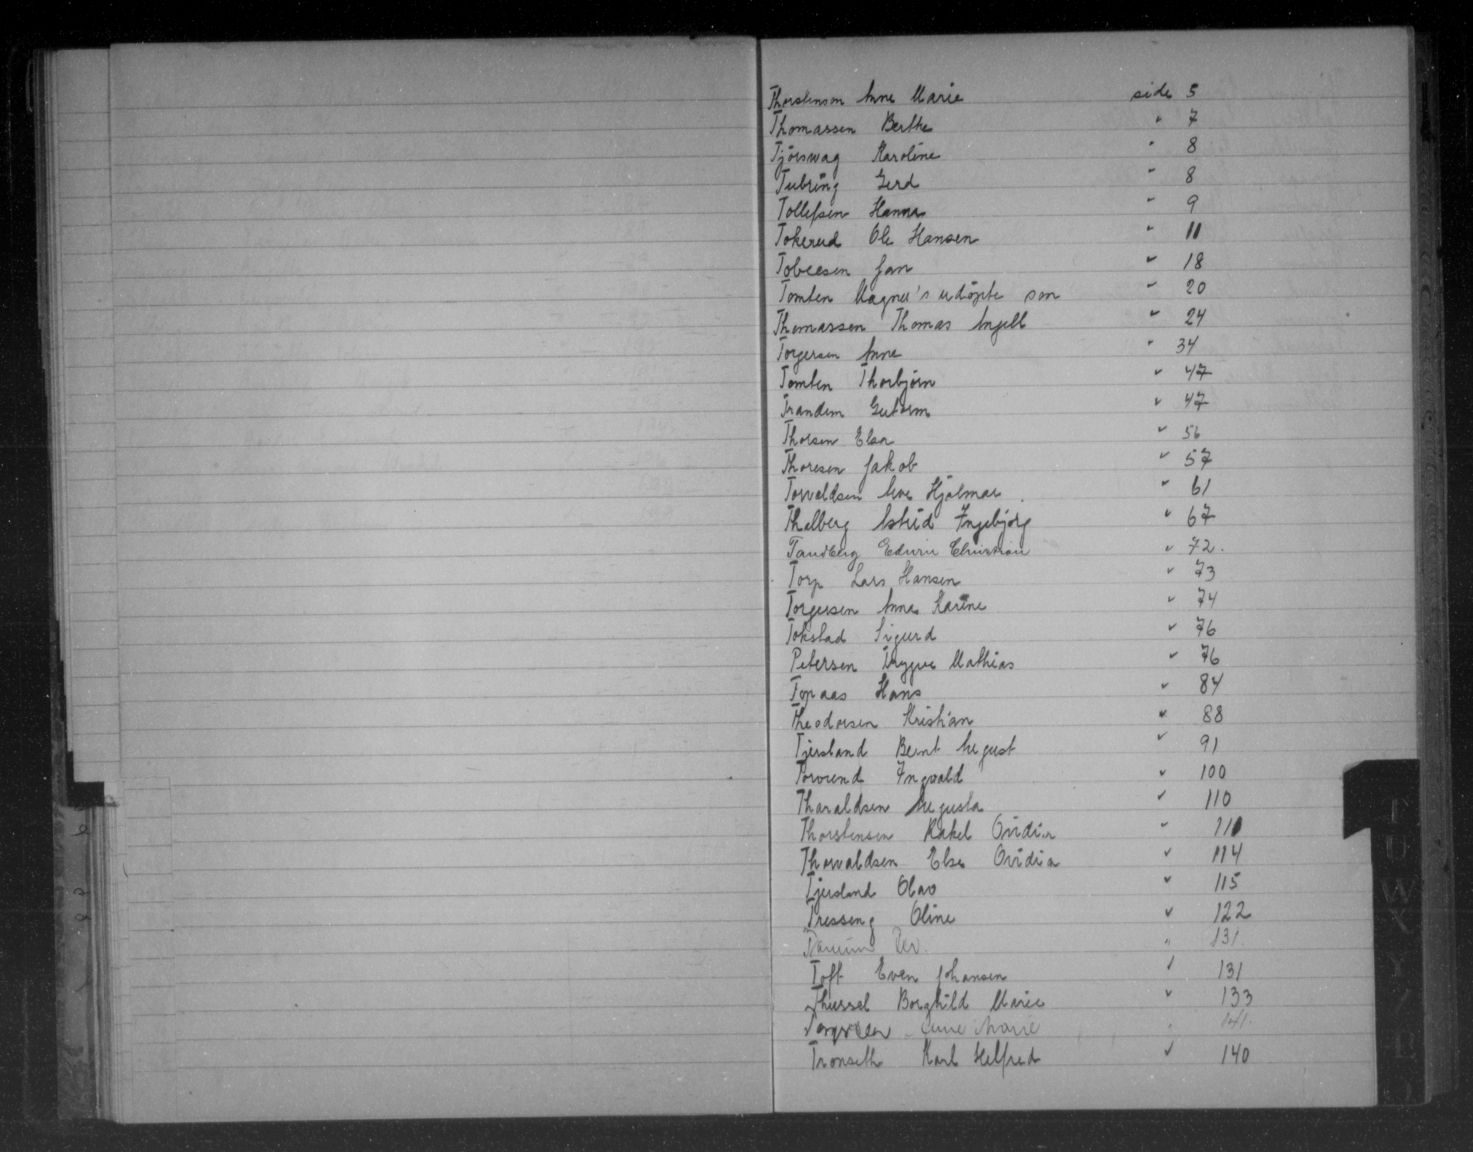 Thorstensen Anne Marie side 5
Thomassen Berthe " 7
Tjörswag Karoline " 8
Tubring Gerd " 8
Tollefsen Hanna " 9
Tokerud Ole Hansen " 11
Tobiesen Jan " 18
Tomten Magner's udöpte søn " 20
Thomassen Thomas Angell " 24
Torgersen Anne " 34
Tomten Thorbjörn " 47
Trandem Guttorm " 47
Thorsen Elsa " 56
Thoresen Jakob " 57
Torvaldsen Arve Hjalmar " 61
Thalberg Astrid Ingebjørg " 67
Tandberg Edwin Christian " 72.
Torp Lars Hansen " 73
Torgersen Anna Karine " 74
Tokstad Sigurd " 76
Petersen Trygve Mathias " 76
Topaas Hans " 84
Theodorsen Kristian " 88
Tjersland Bernt August " 91
Ingvald " 100
Tharaldsen Augusta " 110
Thorstensen Rakel Ovidia " 111
Thorvaldsen Else Ovidia " 114
Tjersland Olav " 115
Tresseng Oline " 122
" 131.
Toft Even Johansen " 131
Borghild Marie " 133
Anne Marie "
Tronseth Karl Helfred " 140
T
U
W
X
Y